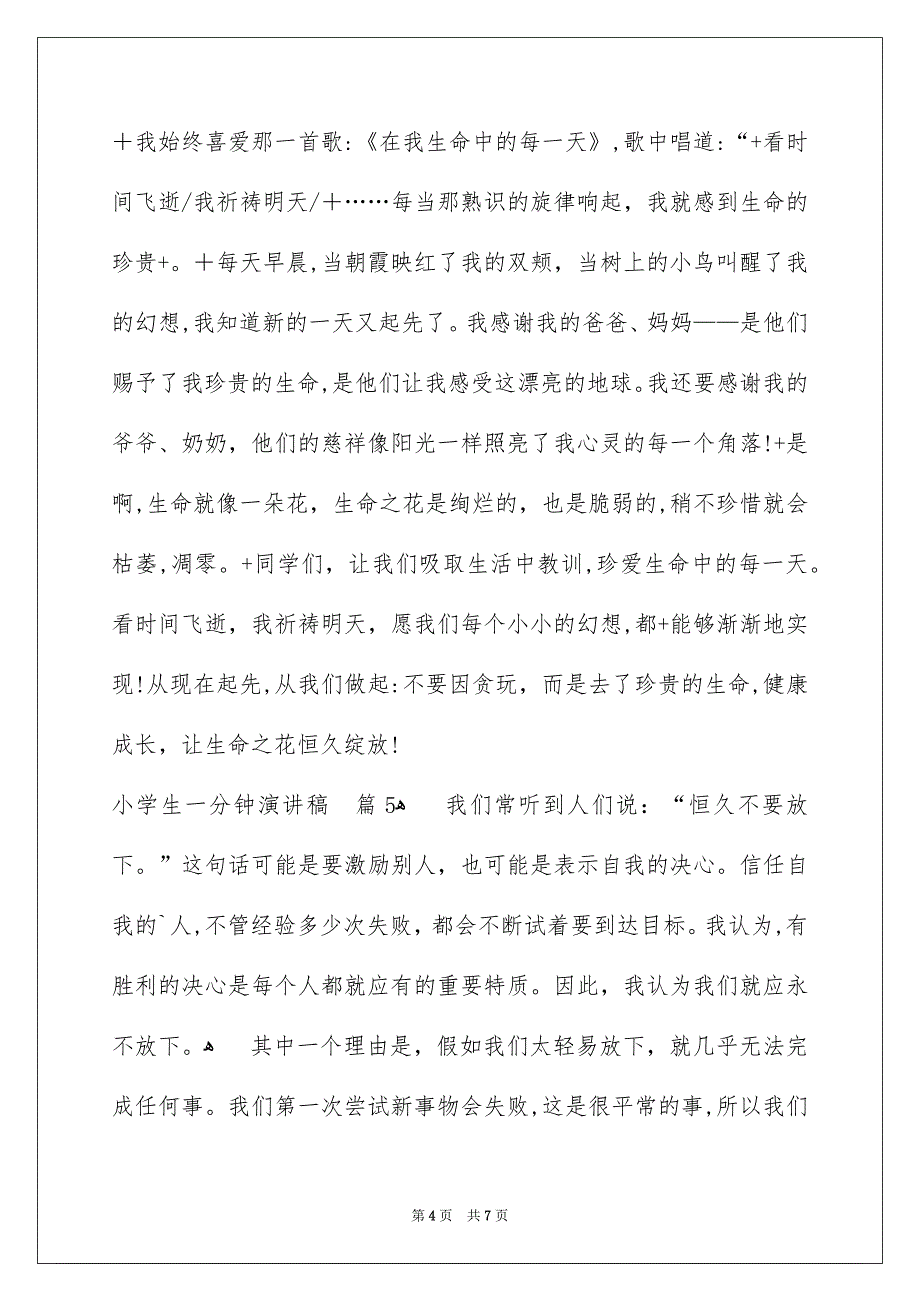 ＋我始终喜爱那一首歌:《在我生命中的每一天》,歌中唱道:“+看时
间飞逝/我祈祷明天/＋……每当那熟识的旋律响起，我就感到生命的
珍贵+。＋每天早晨,当朝霞映红了我的双颊，当树上的小鸟叫醒了我
的幻想,我知道新的一天又起先了。我感谢我的爸爸、妈妈——是他们
赐予了我珍贵的生命,是他们让我感受这漂亮的地球。我还要感谢我的
爷爷、奶奶，他们的慈祥像阳光一样照亮了我心灵的每一个角落!+是
啊,生命就像一朵花，生命之花是绚烂的，也是脆弱的,稍不珍惜就会
枯萎,凋零。+同学们，让我们吸取生活中教训,珍爱生命中的每一天。
看时间飞逝，我祈祷明天，愿我们每个小小的幻想,都+能够渐渐地实
现!从现在起先,从我们做起:不要因贪玩，而是去了珍贵的生命,健康
成长，让生命之花恒久绽放!
小学生一分钟演讲稿　篇5ﻫ　我们常听到人们说：“恒久不要放
下。”这句话可能是要激励别人，也可能是表示自我的决心。信任自
我的`人,不管经验多少次失败，都会不断试着要到达目标。我认为,有
胜利的决心是每个人都就应有的重要特质。因此，我认为我们就应永
不放下。ﻫ　其中一个理由是，假如我们太轻易放下，就几乎无法完
成任何事。我们第一次尝试新事物会失败,这是很平常的事,所以我们
第 4 页　共 7 页